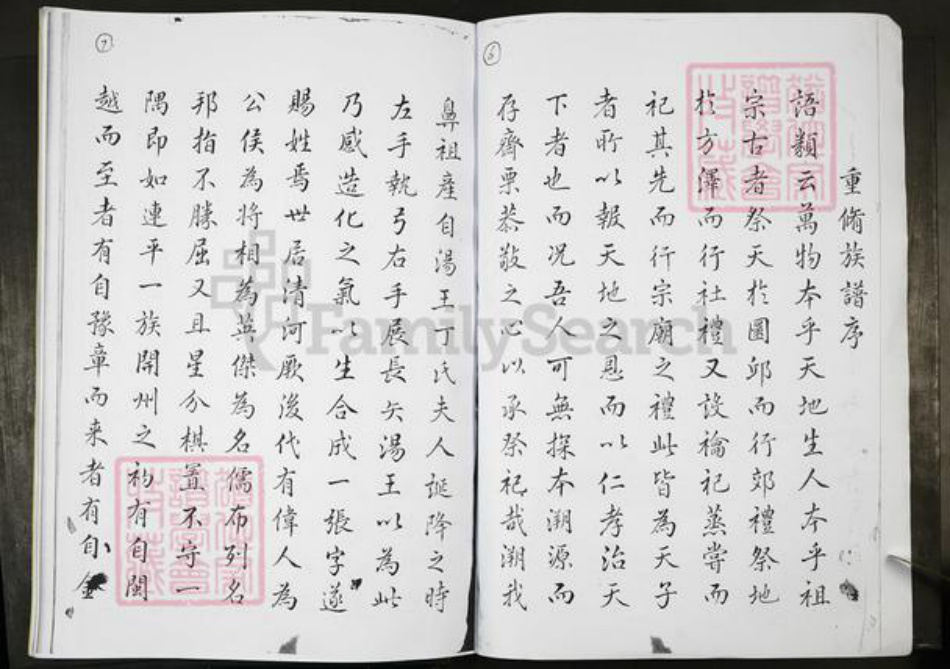 6
重脩族譜序
語類云萬物本乎天地生人本乎祖
宗古者祭天於圜邱而行郊禮祭地
於方澤而行社禮又設禴祀蒸嘗而
祀其先而行宗廟之禮此皆為天子
者所以報天地之恩而以仁孝治天
下者也而况吾人可無探本溯源而
存齊栗恭敬之心以承祭祀哉溯我
7
鼻祖產自湯王丁氏夫人誕降之時
左手執弓右手展長矢湯王以為此
乃感造化之氣以生合成一張字遂
賜姓焉世居清河厥後代有偉人為
公侯為將相為英傑為名儒布列名
邦指不勝屈又且星分棋置不守一
隅即如連平一族開州之初有自閩
越而至者有自豫章而来者有自金
FamilySearch